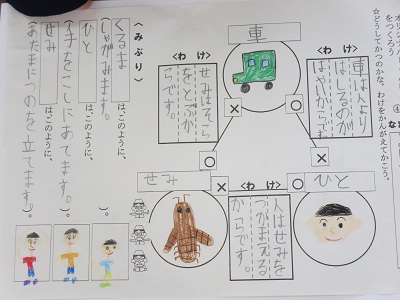 をつくろう
☆どうしてかつのかな。わけをかんがえてかこう。
車
〈わけ〉
車は人より
はしるのが
はやいからです
〈わけ〉
せみはそら
をとぶか
らです。
〈わけ〉
人はせみを
つかまえる
からです。
ひと
せみ
〈みぶり〉
くるま
は、このように、
(しゃがみます。)。
ひと
は、このように、
(手をこしにあてます。)。
せみ
は、このように、
(あたまにつのを立てます。)。